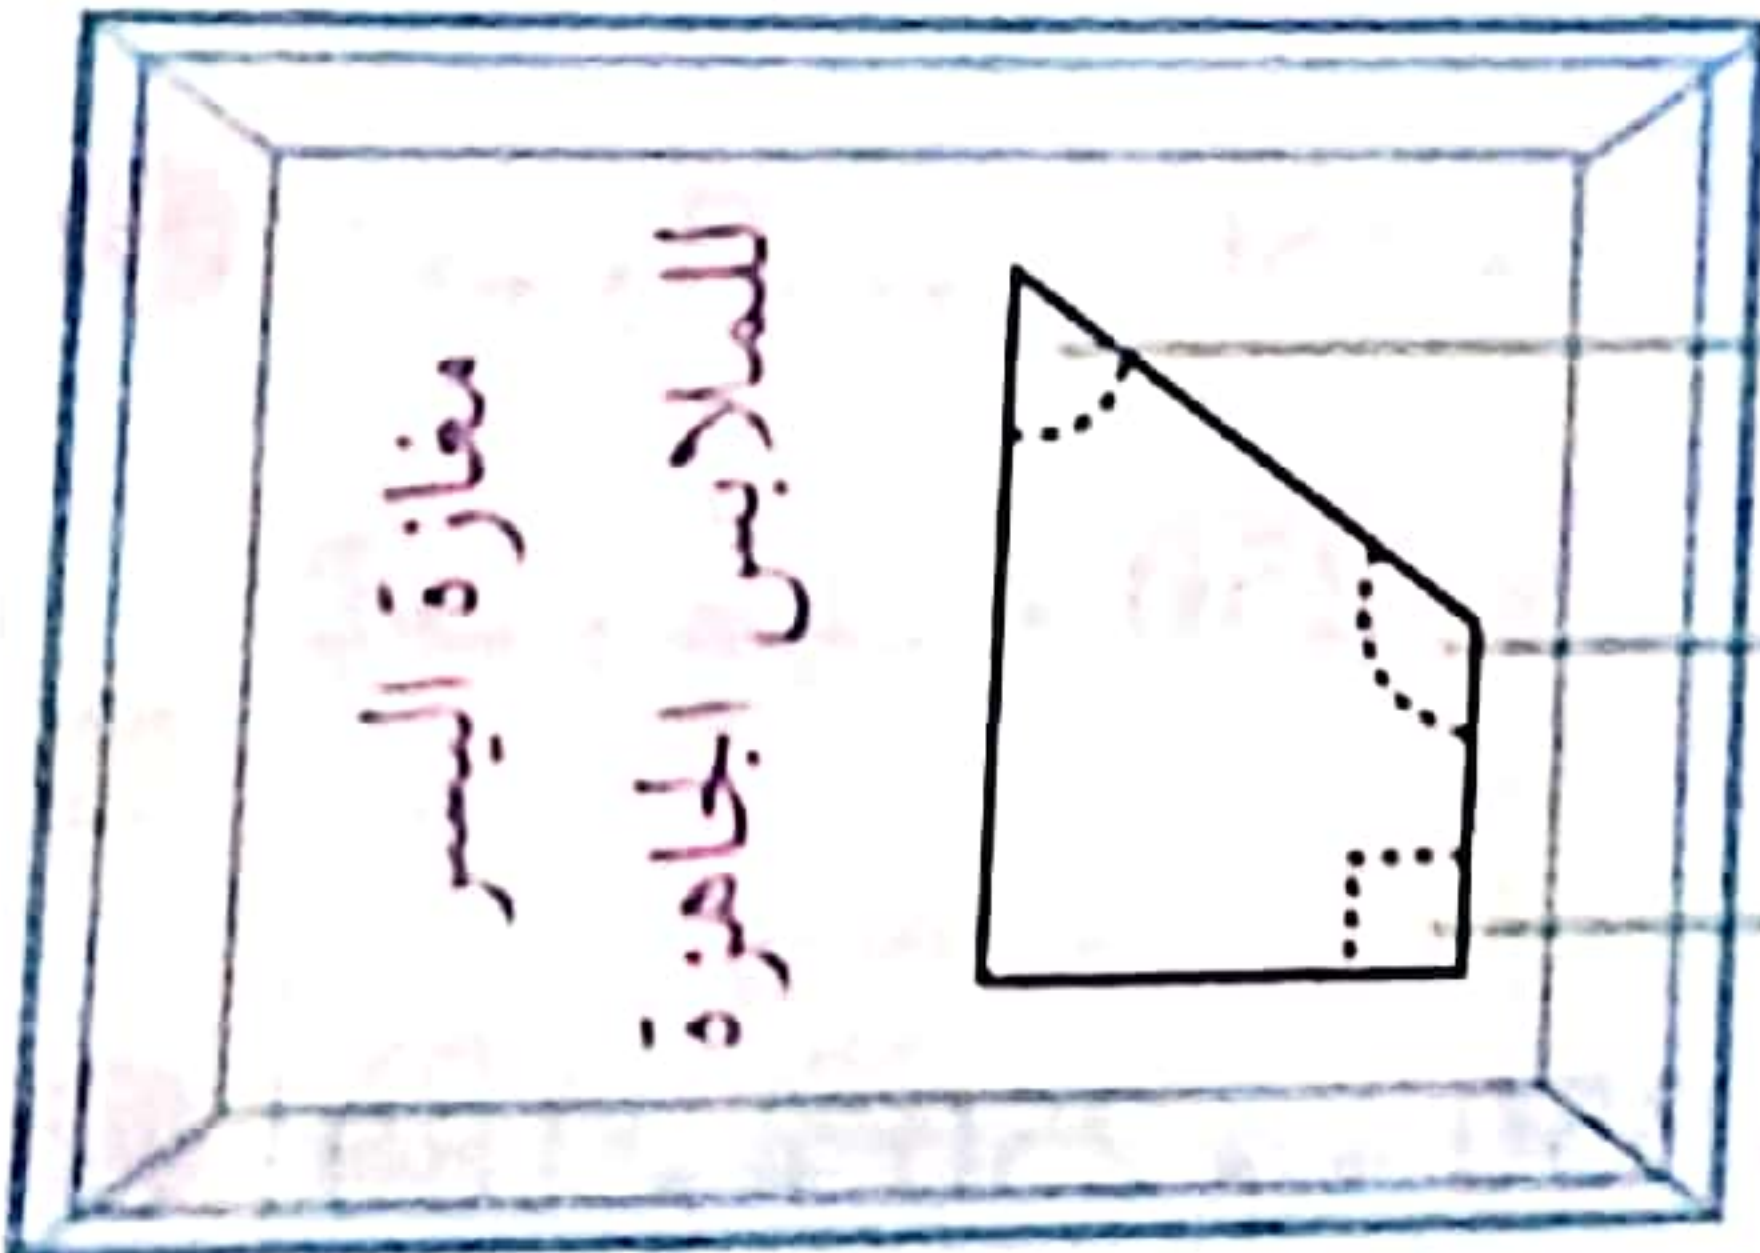 مغازة اليسر
الملابس الجاهزة